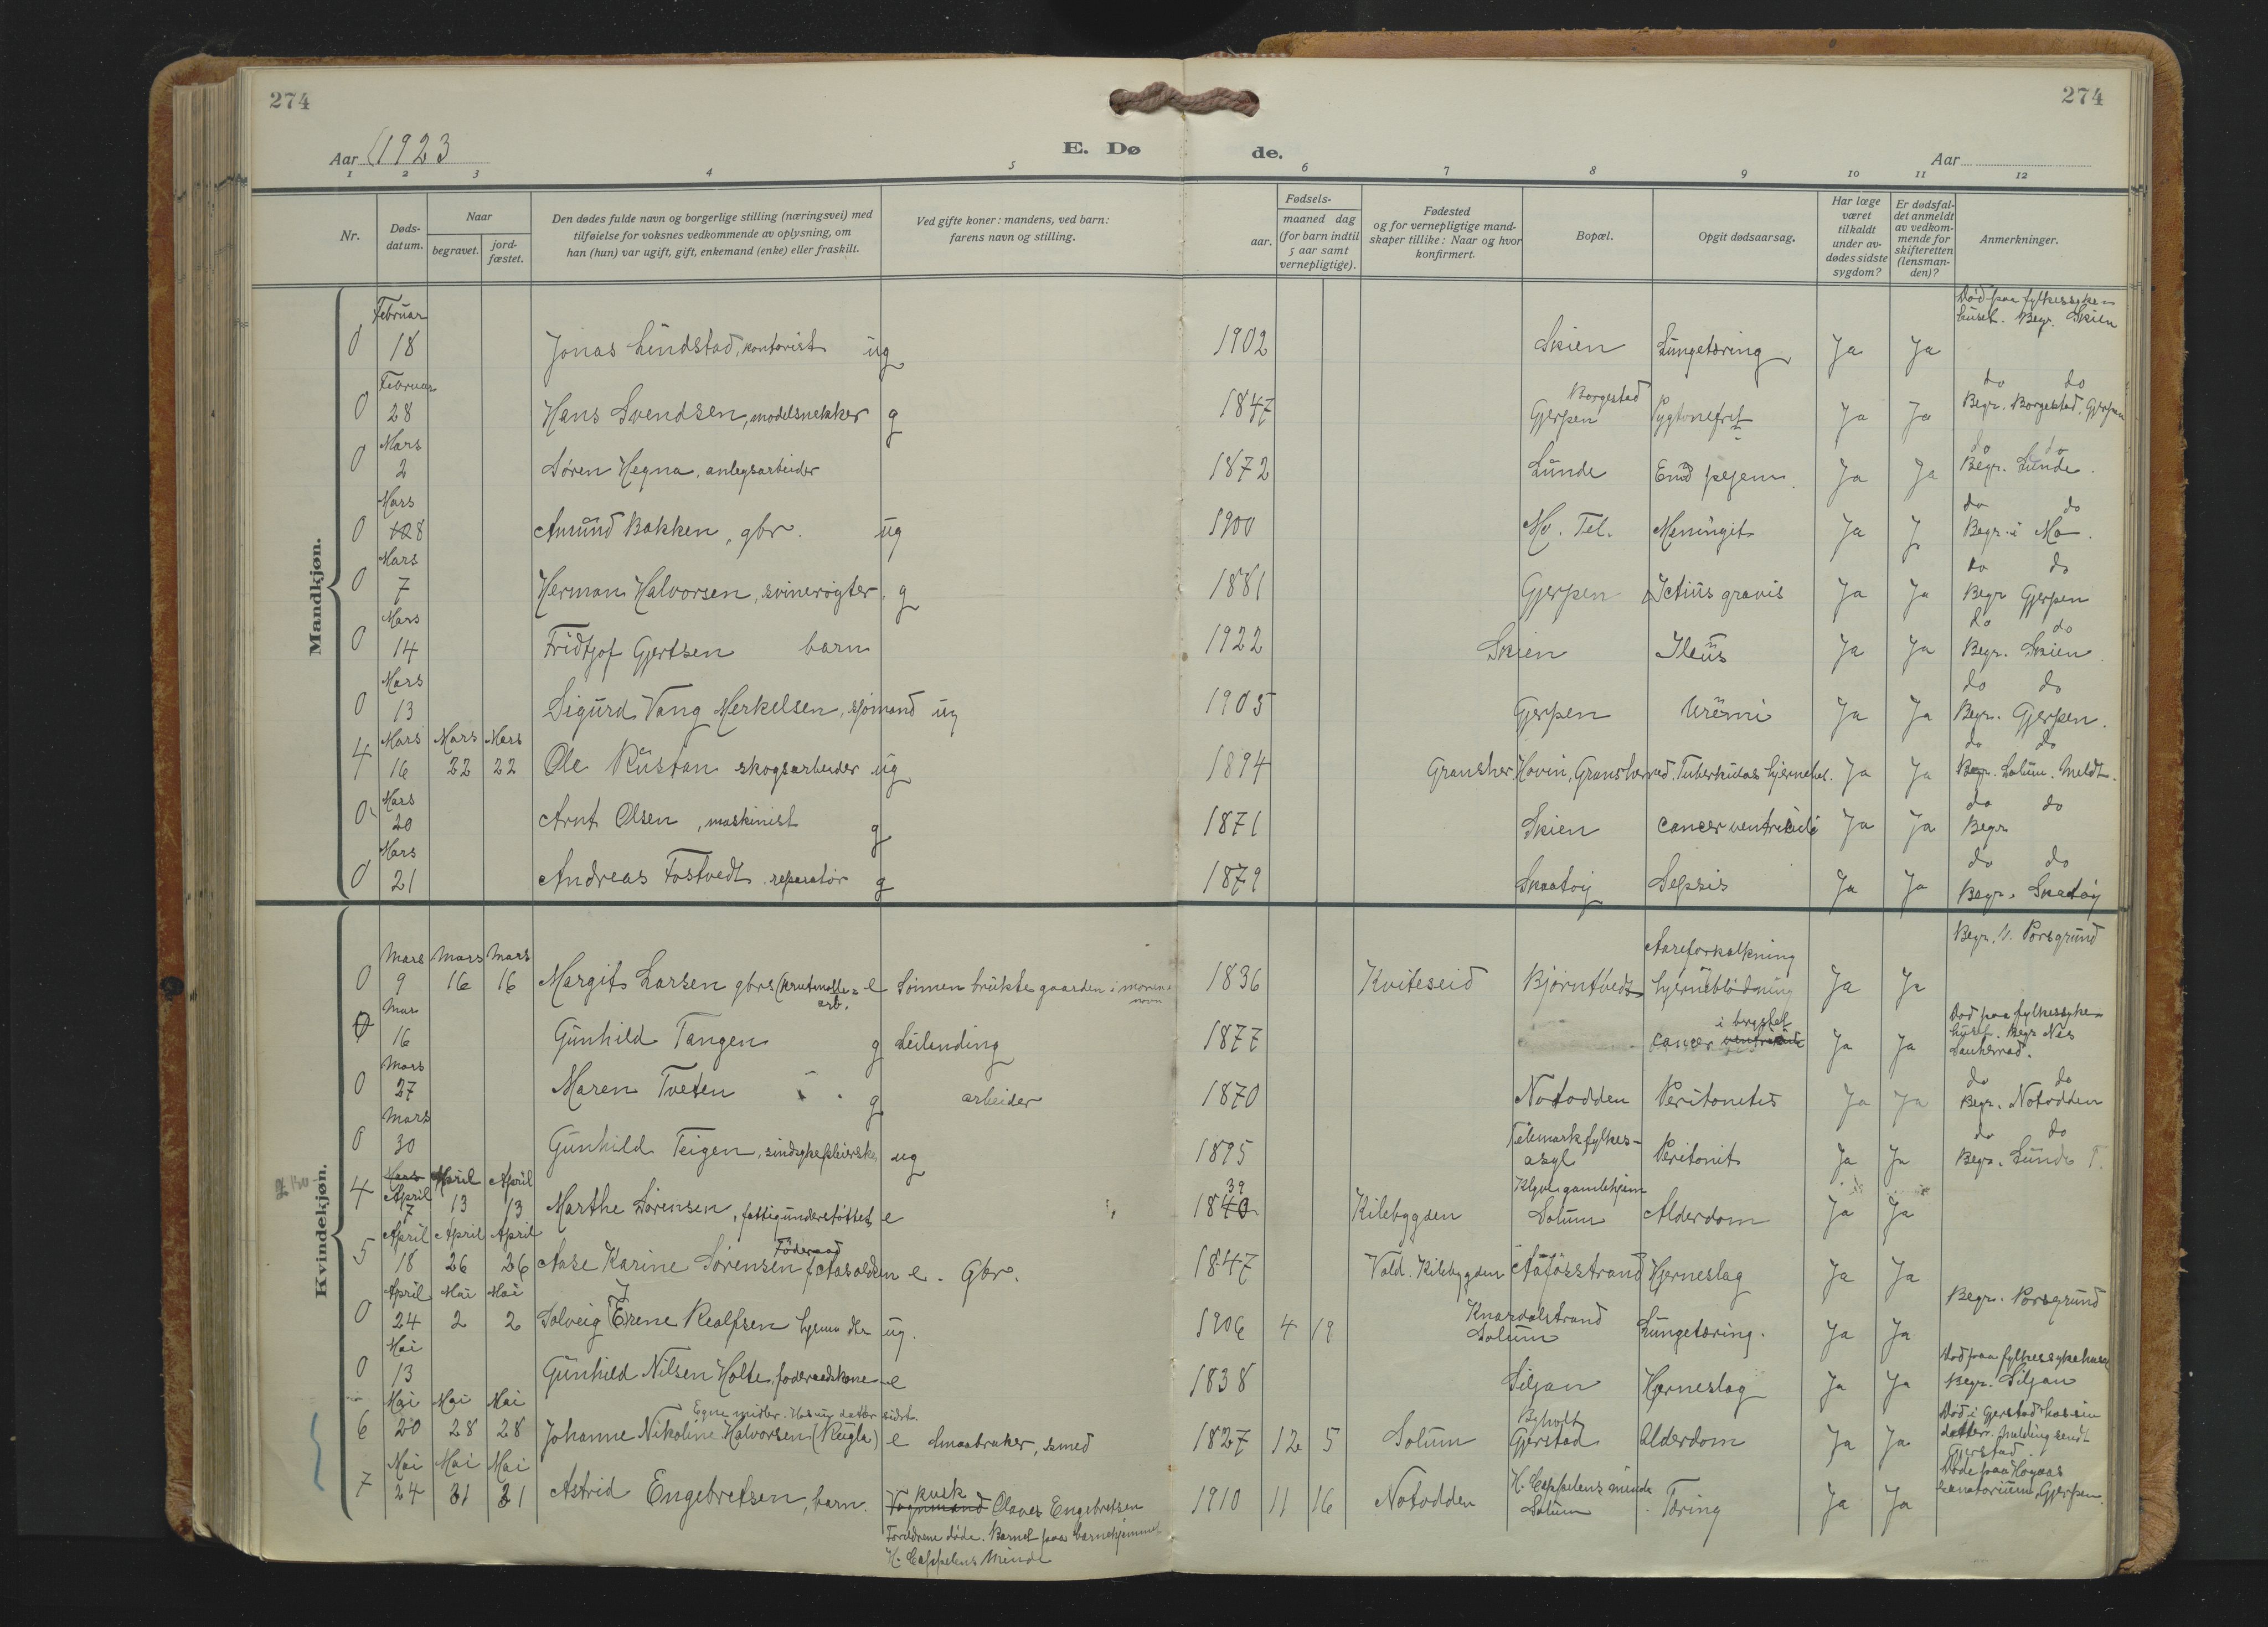 274
274
Aar 1923
E. Dø
de.
Aar
1 2 3 4 5 6 7 8 9 10 11 12
Nr.
Døds-
datum.
Naar
begravet.
jord-
fæstet.
Den dødes fulde navn og borgerlige stilling (næringsvei) med
tilføielse for voksnes vedkommende av oplysning, om
han (hun) var ugift, gift, enkemand (enke) eller fraskilt.
Ved gifte koner: mandens, ved barn:
farens navn og stilling.
Fødsels-
aar.
maaned dag
(for barn indtil
5 aar samt
vernepligtige).
Fødested
og for vernepligtige mand-
skaper tillike: Naar og hvor
konfirmert.
Bopæl.
Opgit dødsaarsag.
Har læge
været
tilkaldt
under av-
dødes sidste
sygdom?
Er dødsfal-
det anmeldt
av vedkom-
mende for
skifteretten
(lensman-
den)?
Anmerkninger.
Mandkjøn.
Februar
Død paa fylkessyke-
huset. Begr. Skien
0 18 Jonas Lindstad, kontorist ug 1902 Skien Lungetæring Ja Ja
Februar
Borgestad
do do
0 28 Hans Svendsen, modelsnekker g 1847 Gjerpen Ja Ja Begr. Borgestad, Gjerpen
Mars
do do
0 2 Søren Hegna, anlegsarbeider 1872 Lunde Ja Ja Begr. Lunde.
Mars
do do
0 8 Amund Bakken, gbr. ug 1900 Mo. Tel. Meningit Ja J Begr. i Mo.
Mars
do do
0 7 Herman Halvorsen, svinerøgter, g 1881 Gjerpen Ictius gravis Ja Ja Begr Gjerpen
Mars
do do
0 14 Fridtjof Gjertsen barn 1922 Skien Ileus Ja Ja Begr. Skien
Mars
do do
0 13 Sigurd Vang Merkelsen, sjømand ug 1905 Gjerpen Uremi Ja Ja Begr. Gjerpen.
Mars Mars Mars
do do
4 16 22 22 Ole Rustan skogsarbeider ug 1894 Gransher Hovin, Gransherrad. Tuberkuløs hjernebet. Ja Ja Begr. Solum. Meldt.
Mars
do do
0 20 Arnt Olsen, maskinist g 1871 Skien cancer ventriculi Ja Ja Begr
Mars
do do
0 21 Andreas Tostvedt, reparatør g 1879 Skaatøy Sepsis Ja Ja Begr. Skaatøy
Kvindekjøn.
Mars Mars Mars
Aareforkalkning
Begr. V. Porsgrund
0 9 16 16 Margit Larsen gbrs (krutmølle= e Sønnen brukte gaarden i morens 1836 Kviteseid Bjørntvedt hjerneblødning Ja Ja
arb.
navn
Mars
i brystet
Død paa fylkessyke-
huset. Begr Nes
Sauherrad.
0 16 Gunhild Tangen g Leilending 1877 cancer ventriculi Ja Ja
Mars
do do
0 27 Maren Tveten g arbeider 1870 Notodden Peritonitis Ja Ja Begr. Notodden
Mars
Telemark fylkes-
do do
0 30 Gunhild Teigen, sindsykepleierske, ug 1895 asyl Peritonit Ja Ja Begr. Lunde T.
Mars April April
39
Klyve gamlehjem
4 April 7 13 13 Marthe Sørensen, fattigunderstøttet e 1840 Kilebygden Solum Alderdom Ja Ja
April April April
Føderaad
5 18 26 26 Aase Karine Sørensen e. Gbr. 1847 Vold. Kilebygden Aafosstrand Hjerneslag Ja Ja
April Mai Mai
I
Knardalstrand
Begr. Porsgrund
0 24 2 2 Solveig Erene Realfsen hjemmedtr ug. 1906 4 19 Solum Lungetæring. Ja Ja
Mai
Død paa fylkessykehuset
0 13 Gunhild Nilsen Holte, føderaadskone e 1838 Siljan Hjerneslag Ja Ja Begr. Siljan
Mai Mai Mai
Egne midler. Hos sin datter sidst.
Død i Gjerstad hos sin
datter. melding sendt
Gjerstad
6 20 28 28 Johanne Nikoline Halvorsen (Rugla) e Smaabruker, smed 1827 12 5 Solum Gjerstad Alderdom Ja Ja
Mai Mai Mai
Døde paa Høyaas
sanatorium, Gjerpen.
kusk
7 24 31 31 Astrid Engebretsen, barn. Vognmand Olaves Engebretsen 1910 11 16 Notodden H. Cappelens minde Tæring Ja Ja
Solum
Foreldrene døde. Barnet paa barnehjemmet
H. Cappelens Minde